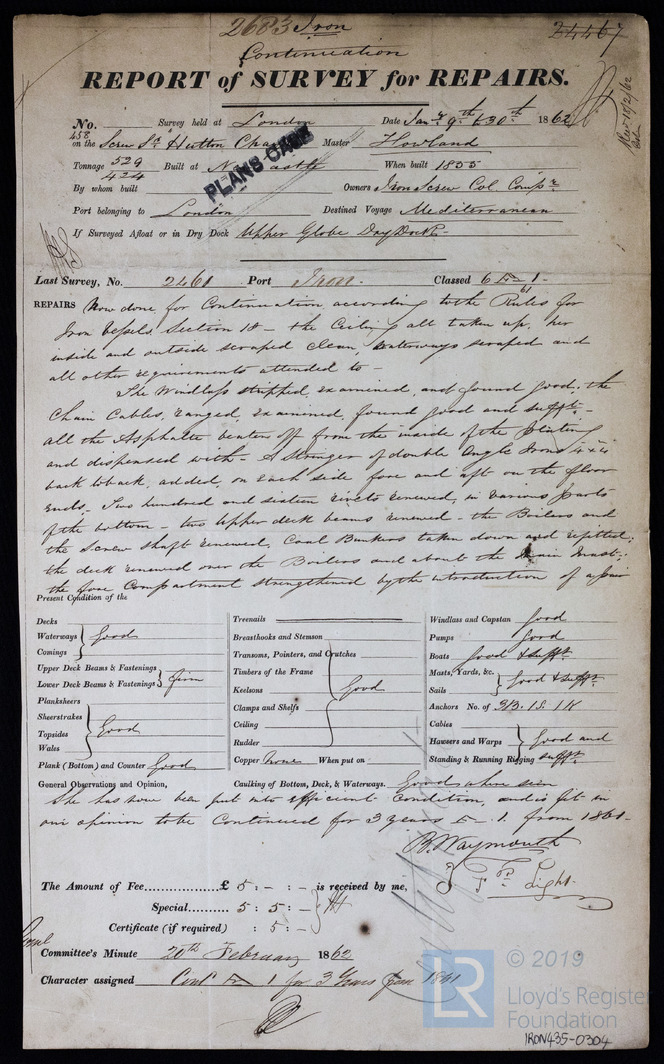 2683 Iron
24467
Continuation
REPORT of SURVEY for REPAIRS.
No. Survey held at London Date Jany 9th & 30th 1862
458
on the Screw Sr Hutton Chaytor Master Howland
Tonnage 529 Built at Newcastle When built 1855
424
PLANS CASE
By whom built Owners Iron Screw Col. Compy
Port belonging to London Destined Voyage Mediterranean
If Surveyed Afloat or in Dry Dock Upper Globe Dry Dock
Last Survey, No. 2461 Port Iron. Classed 6 1-
61
REPAIRS Now done for Continuation according to the Rules for
Iron Vessels, Section 18 - the Ceiling all taken up, her
inside and outside scraped clean, waterways scraped and
all other requirements attended to -
The Windlass stripped, examined, and found good; the
Chain Cables, ranged, examined, found good and sufft -
all the Asphalte beaten off from the inside of the Plating
and dispensed with - A Stringer of double Angle Irons 4 x 4
back to back, added, on each side fore and aft on the floor
ends. Two hundred and sixteen rivets renewed, in various parts
of the bottom - two Upper deck beams renewed - the Boilers and
the Screw Shaft renewed, Coal Bunkers taken down and refitted;
the deck renewed over the Boilers and about the Main Mast;
the fore Compartment strengthened by the introduction of a pair
Present Condition of the
Decks
Waterways Good
Comings
Upper Deck Beams & Fastenings
Lower Deck Beams & Fastenings Firm
Planksheers
Sheerstrakes
Topsides Good
Wales
Plank (Bottom) and Counter Good
Treenails
Breasthooks and Stemson
Transoms, Pointers, and Crutches
Timbers of the Frame
Keelsons Good
Clamps and Shelfs
Ceiling
Rudder
Copper None When put on
Windlass and Capstan Good
Pumps Good
Boats Good & sufft
Masts, Yards, &c. Good & sufft
Sails
Anchors No. of 3B. 1S. 1K
Cables
Hawsers and Warps Good and
Standing & Running Rigging sufft
General Observations and Opinion, Caulking of Bottom, Deck, & Waterways. Good where seen
She has now been put into efficient condition, and is fit in
our opinion to be Continued for 3 years 1. from 1861
B. Waymouth
Light
The Amount of Fee £ 5 : - : - is received by me,
Special 5 : 5 : -
Certificate (if required) : 5 : -
Committee's Minute 20th February 1862
Character assigned Contd 1 for 3 Years from 1861
LR © 2019
Lloyd's Register
Foundation
IRON435-0304